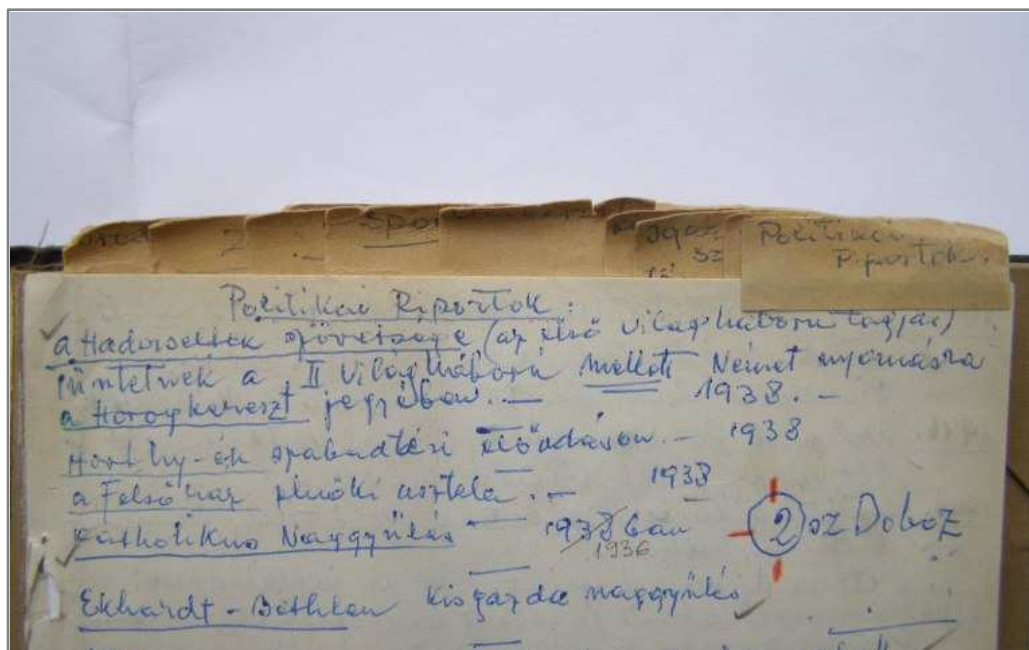 Spor
Politikai
Riportok.
Politikai Riportok:
a Hadviseltek szövetsége (az első világháború tagjai)
tüntetnek a II Világháború mellett Német nyomásra
a Horogkereszt jegyében. — 1938. —
Horthy-ék szabadtéri előadáson. — 1938
a Felsőház elnöki asztala. — 1938
Katholikus Naggyűlés — 1938 ban
1936
2 sz Doboz
Ekhardt - Bethlen kisgazda naggyűlés